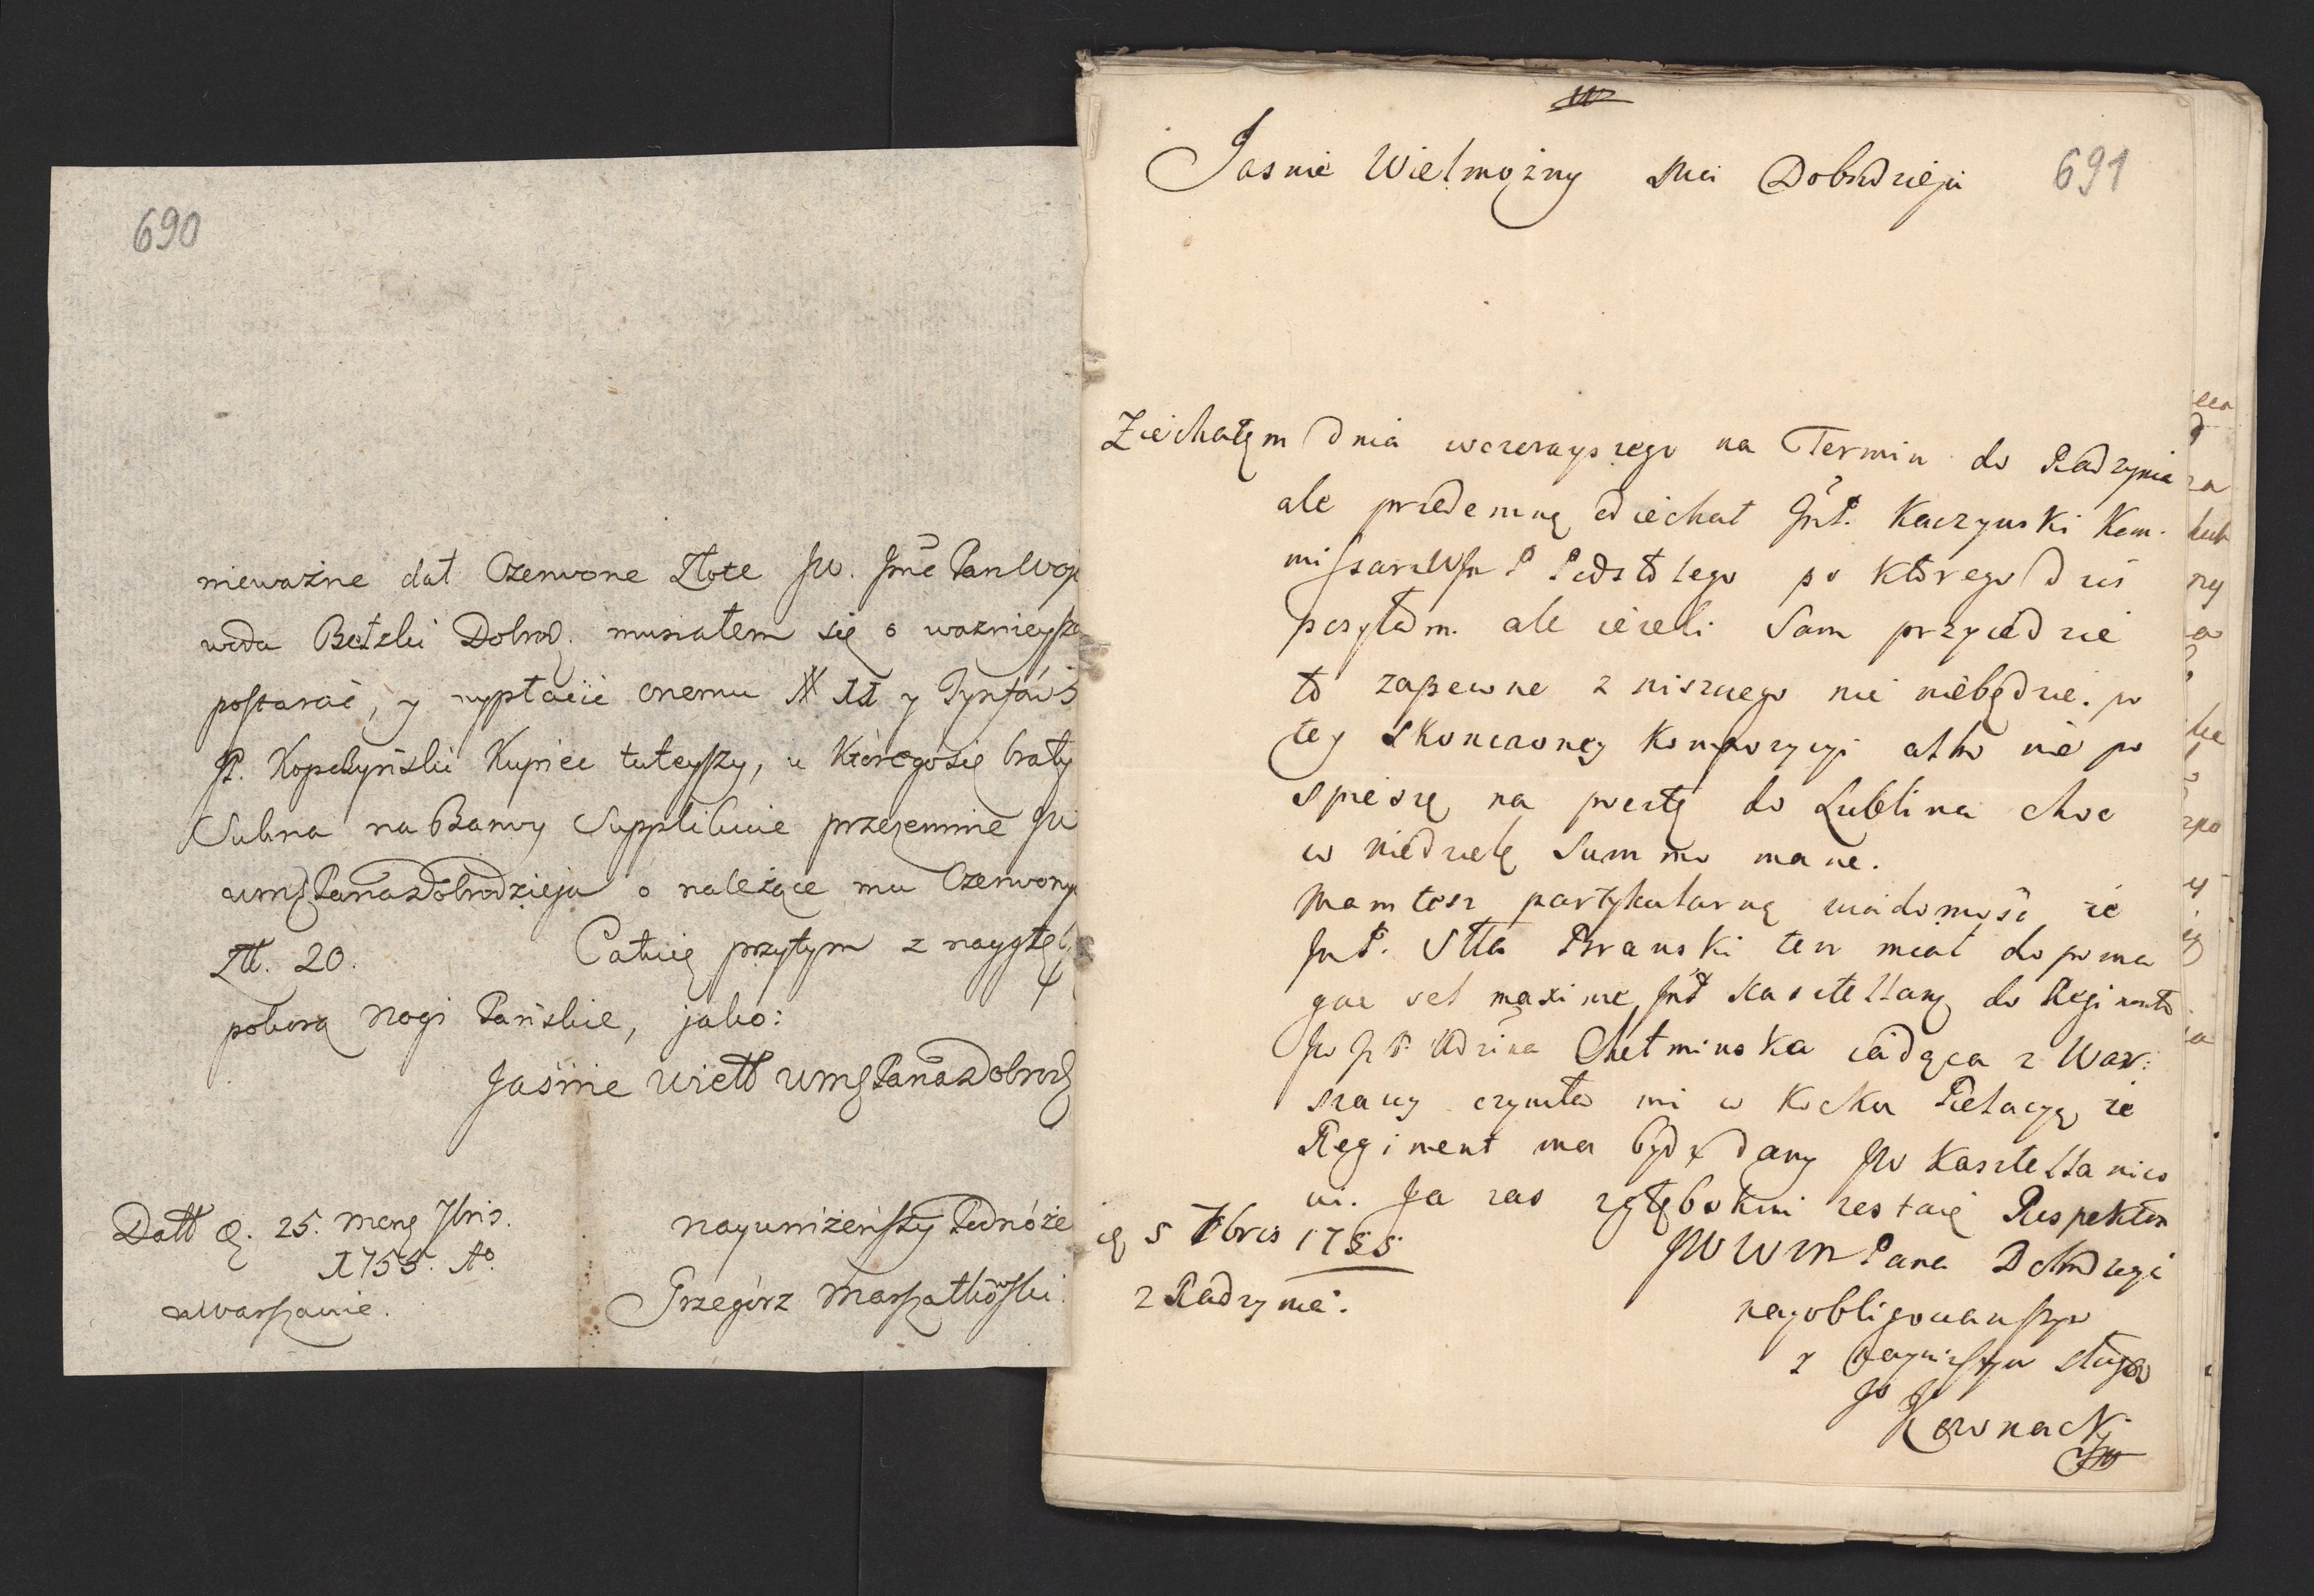 690
nieważne dał Czerwone Złote JW. Jmć Pan Woje
woda Bełzki Dobrod. musiałem się o ważnieysze
postarać, y wypłacić onemu y Tynfów 5
JP. Kopczyński Kupiec tuteyszy, u którego się brały
Sukna na Barwy Supplikuie przezemnie JW
WMP Pana Dobrodzieja o należące mu Czerwonych
Złł. 20. Całuię przytym z naygłęb
pokorą Nogi Pańskie, jako:
Jaśnie Wiell WMP Pana Dobrodz
Datt d. 25. mens 7bris.
1755. Ao.
w Warszawie.
nayuniżeńszy Podnóże
Grzegórz Marszałkowski.
691
Jasnie Wielmożny Mci Dobrodzieju
Ziechałęm dnia wczorayszego na Termin do Radzynia
ale przedemną odiechał JmP. Kaczynski Kom.
missarz JW P Podstolego po ktorego dzis
posyłam. ale iezeli Sam przyiedzie
to zapewne z nisznego nie niebędzie. po
tey skonczoney kompozycyi albo nie po
spieszę na pocztę do Lublina choc
w niedzielę Summo mane.
Mam tesz partykularną wiadomość ze
JmP. Stta Branski ten miał dopoma
gac vel maxime JmP Kasztellanę do Regimentu
JW JP Udzina Chełminska iadąca z War:
szawy czyniła mi w Kocku Relacyą ze
Regiment ma bydz dany JW Kasztellanico
wi. Ja zas zgłębokim zostaię Respektem
JWWM Pana Dobrodzieja
nayobligowanszym
y nayniszym sługą
d 5 7bris 1755
z Radzynia.
Kownacki